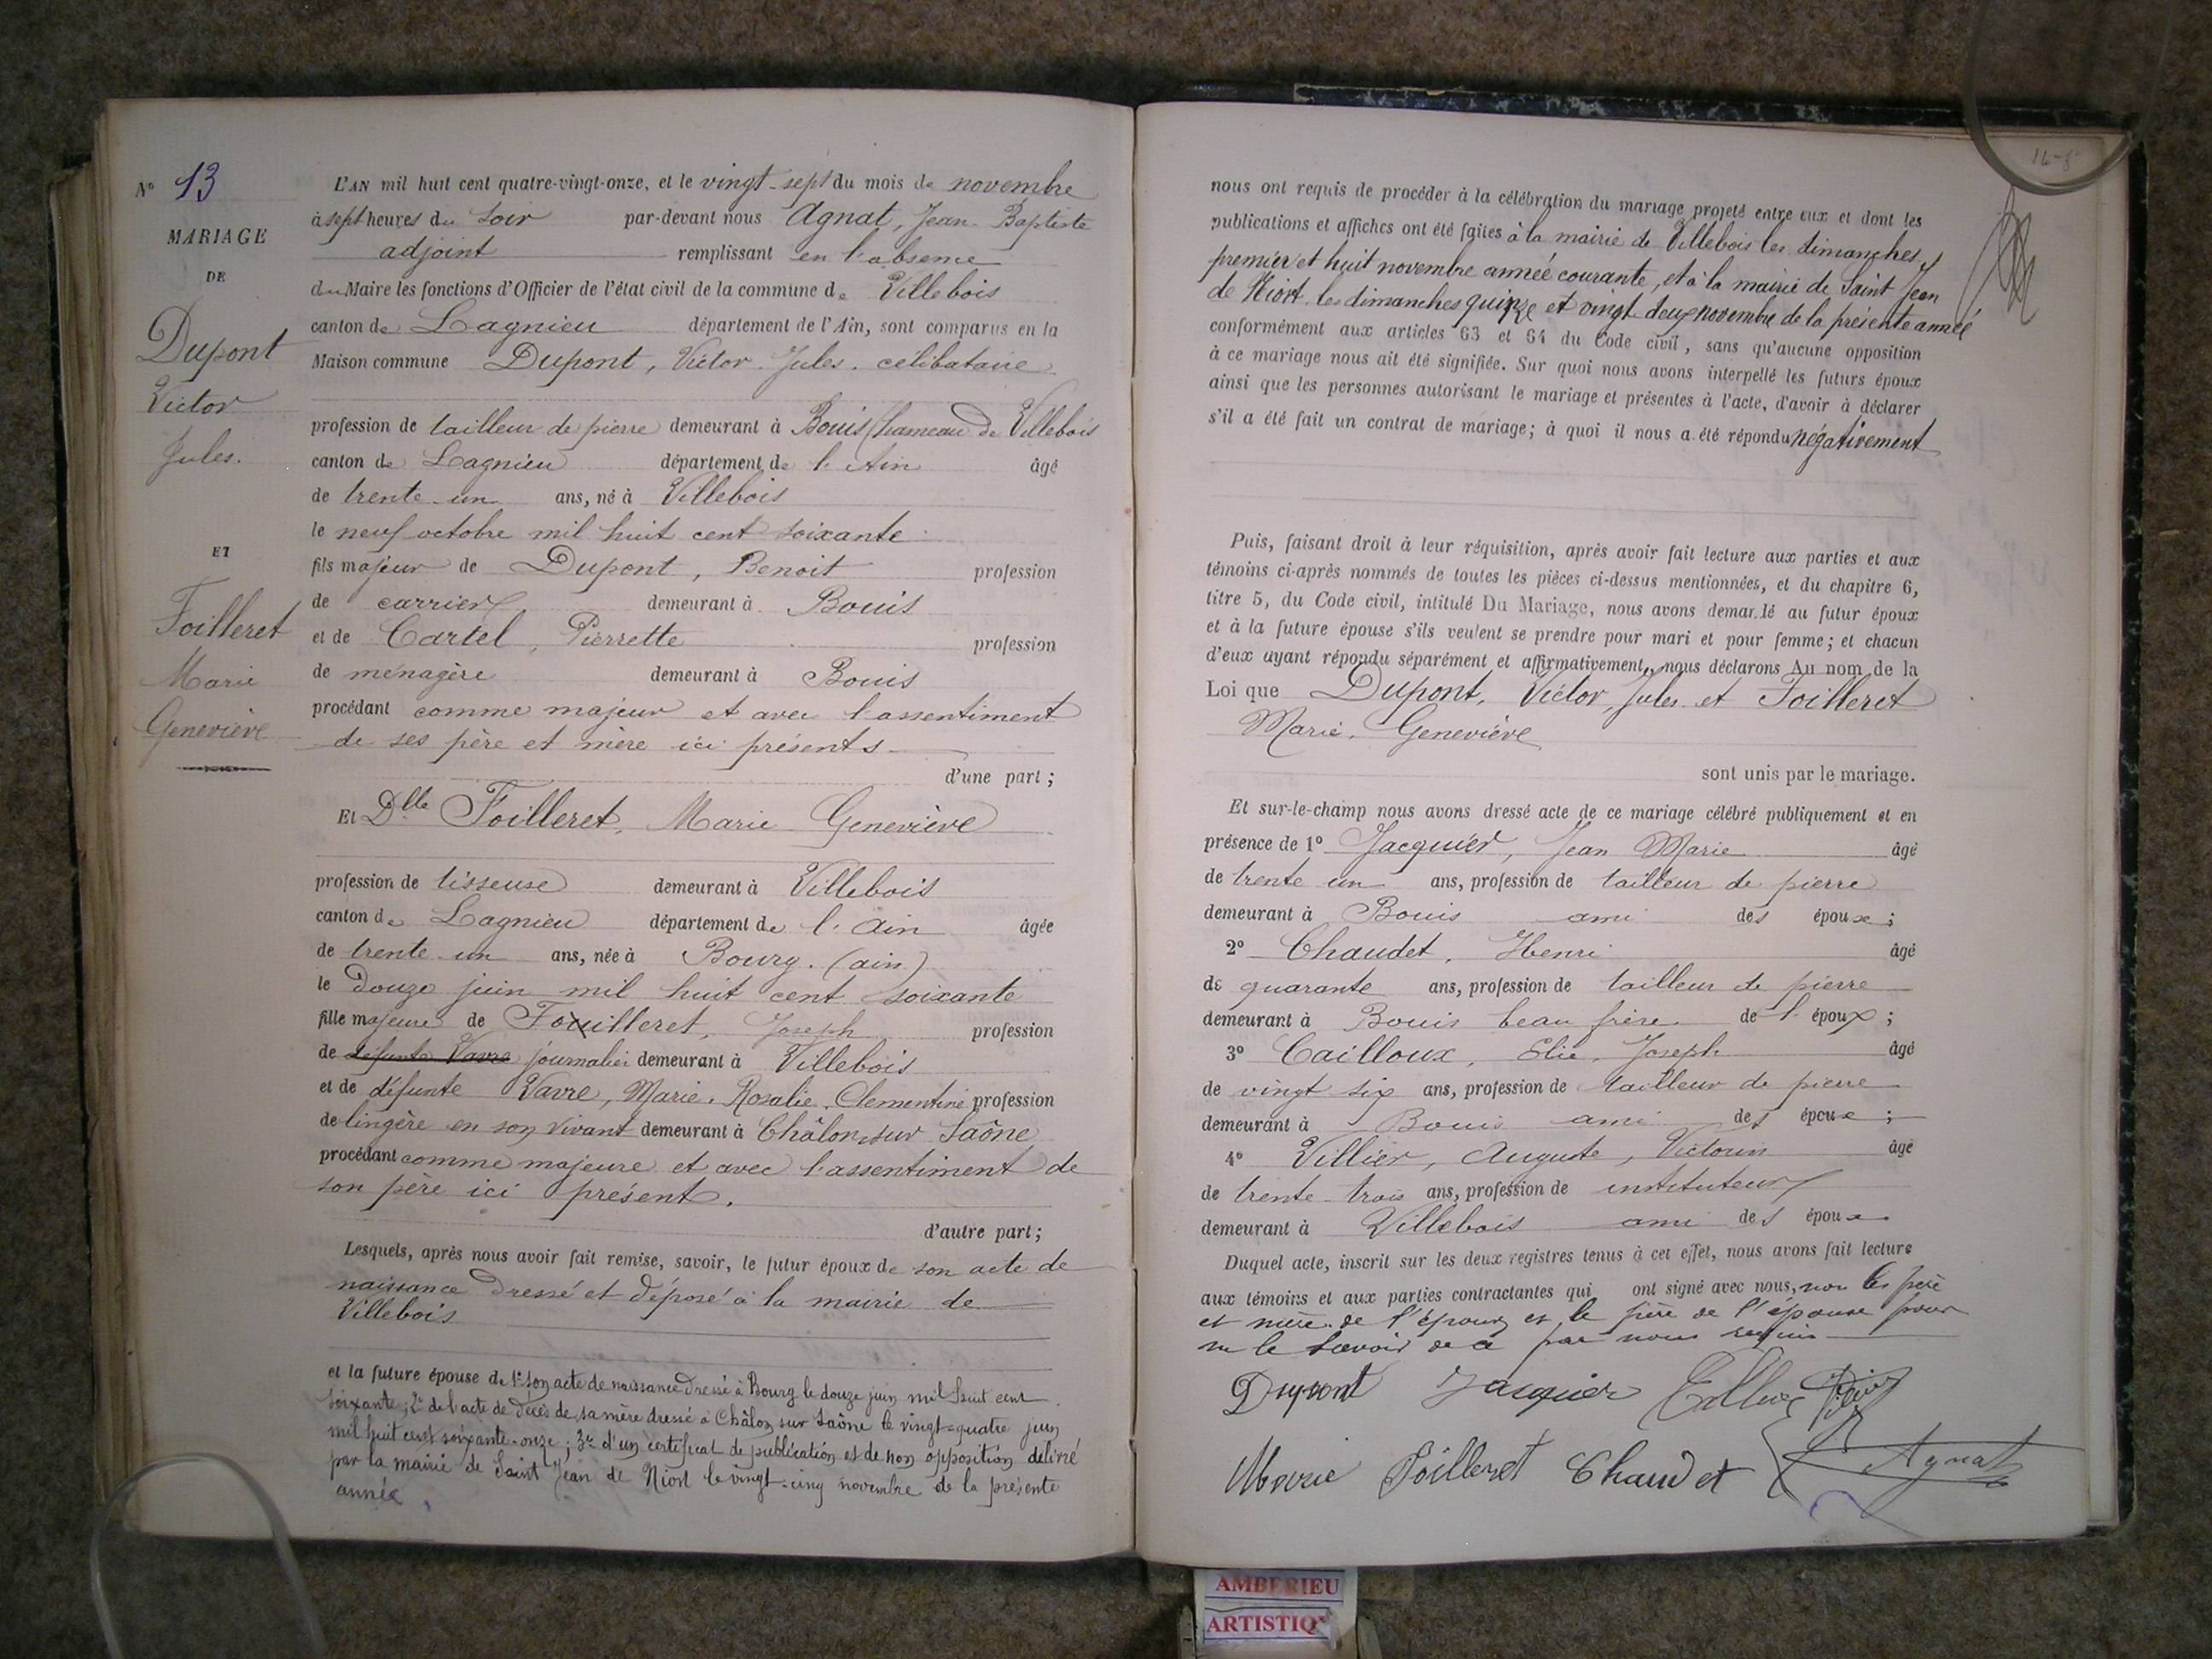 N° 13
MARIAGE
DE
Dupont
Victor
Jules.
ET
Foilleret
Marie
Geneviève
L'AN mil huit cent quatre-vingt-onze, et le vingt-sept du mois de novembre
à sept heures du soir par-devant nous Agnat, Jean-Baptiste
adjoint remplissant en l'absence
du Maire les fonctions d'Officier de l'état civil de la commune de Villebois
canton de Lagnieu département de l'Ain, sont comparus en la
Maison commune Dupont, Victor. Jules. célibataire
profession de tailleur de pierre demeurant à Bouis (hameau de Villebois
canton de Lagnieu département de l'Ain âgé
de trente-un ans, né à Villebois
le neuf octobre mil huit cent soixante
fils majeur de Dupont, Benoit profession
de carrier demeurant à Bouis
et de Cartel, Pierrette profession
de ménagère demeurant à Bouis
procédant comme majeur et avec l'assentiment
de ses père et mère ici présents
d'une part;
Et Dlle Foilleret, Marie Geneviève
profession de tisseuse demeurant à Villebois
canton de Lagnieu département de l'Ain âgée
de trente-un ans, née à Bourg. (ain)
le douze juin mil huit cent soixante
fille majeure de Fouilleret, Joseph profession
de défunte Vavre journalier demeurant à Villebois
et de défunte Vavre, Marie. Rosalie. Clementine profession
de lingère en son vivant demeurant à Châlon sur Saône
procédant comme majeure et avec l'assentiment de
son père ici présent.
d'autre part;
Lesquels, après nous avoir fait remise, savoir, le futur époux de son acte de
naissance dressé et déposé à la mairie de
Villebois
et la future épouse de 1° son acte de naissance dressé à Bourg le douze juin mil huit cent
soixante; 2° de l'acte de décès de sa mère dressé à Châlon sur Saône le vingt-quatre juin
mil huit cent soixante-onze; 3° d'un certificat de publication et de non opposition délivré
par la mairie de Saint Jean de Niort le vingt-cinq novembre de la présente
année.
nous ont requis de procéder à la célébration du mariage projeté entre eux et dont les
publications et affiches ont été faites à la mairie de Villebois les dimanches
premier et huit novembre année courante, et à la mairie de Saint Jean
de Niort les dimanches quinze et vingt deux novembre de la présente année
conformément aux articles 63 et 64 du Code civil, sans qu'aucune opposition
à ce mariage nous ait été signifiée. Sur quoi nous avons interpellé les futurs époux
ainsi que les personnes autorisant le mariage et présentes à l'acte, d'avoir à déclarer
s'il a été fait un contrat de mariage; à quoi il nous a été répondu négativement
Puis, faisant droit à leur réquisition, après avoir fait lecture aux parties et aux
témoins ci-après nommés de toutes les pièces ci-dessus mentionnées, et du chapitre 6,
titre 5, du Code civil, intitulé Du Mariage, nous avons demandé au futur époux
et à la future épouse s'ils veulent se prendre pour mari et pour femme; et chacun
d'eux ayant répondu séparément et affirmativement, nous déclarons Au nom de la
Loi que Dupont, Victor, Jules et Foilleret
Marie. Geneviève
sont unis par le mariage.
Et sur-le-champ nous avons dressé acte de ce mariage célébré publiquement et en
présence de 1° Jacquier, Jean Marie âgé
de trente un ans, profession de tailleur de pierre
demeurant à Bouis ami des époux;
2° Chaudet, Henri âgé
de quarante ans, profession de tailleur de pierre
demeurant à Bouis beau frère de l'époux;
3° Cailloux, Elie, Joseph âgé
de vingt six ans, profession de tailleur de pierre
demeurant à Bouis ami des époux;
4° Villier, Auguste, Victorin âgé
de trente-trois ans, profession de instituteur
demeurant à Villebois ami des époux
Duquel acte, inscrit sur les deux registres tenus à cet effet, nous avons fait lecture
aux témoins et aux parties contractantes qui ont signé avec nous, non les père
et mère de l'époux et le père de l'épouse pour
ne le savoir de ce par nous requis
Dupont Jacquier
Marie Foilleret Chaudet Agnat
AMBERIEU
ARTISTIQ